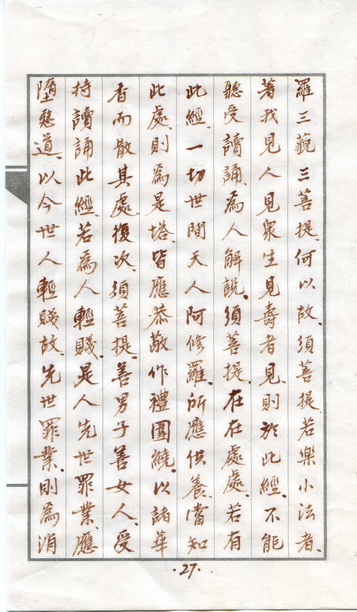 羅三藐三菩提。何以故。須菩提。若樂小法者。
著我見人見眾生見壽者見。則於此經。不能
聽受讀誦。為人解說。須菩提。在在處處。若有
此經。一切世間天人阿修羅。所應供養。當知
此處。則為是塔。皆應恭敬作禮圍繞。以諸華
香而散其處。復次。須菩提。善男子善女人。受
持讀誦此經。若為人輕賤。是人先世罪業。應
墮惡道。以今世人輕賤故。先世罪業。則為消
·27·